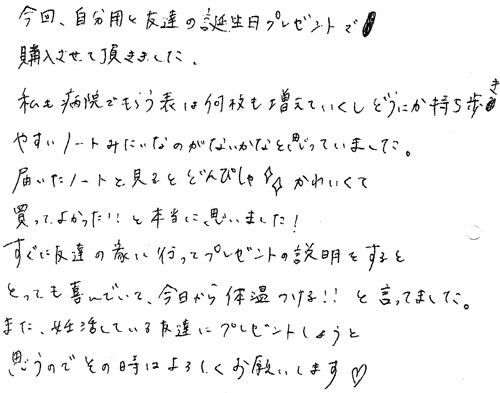 今回、自分用と友達の誕生日プレゼントで
購入させて頂きました。
私も病院でもらう表は何枚も増えていくしどうにか持ち歩き
やすいノートみたいなのがないかなと思っていました。
届いたノートを見るとどんぴしゃ かわいくて
買ってよかった!!と本当に思いました!
すぐに友達の家に行ってプレゼントの説明をすると
とっても喜んでいて、今日から体温つける!!と言ってました。
また、妊活している友達にプレゼントしようと
思うのでその時はよろしくお願いします♡